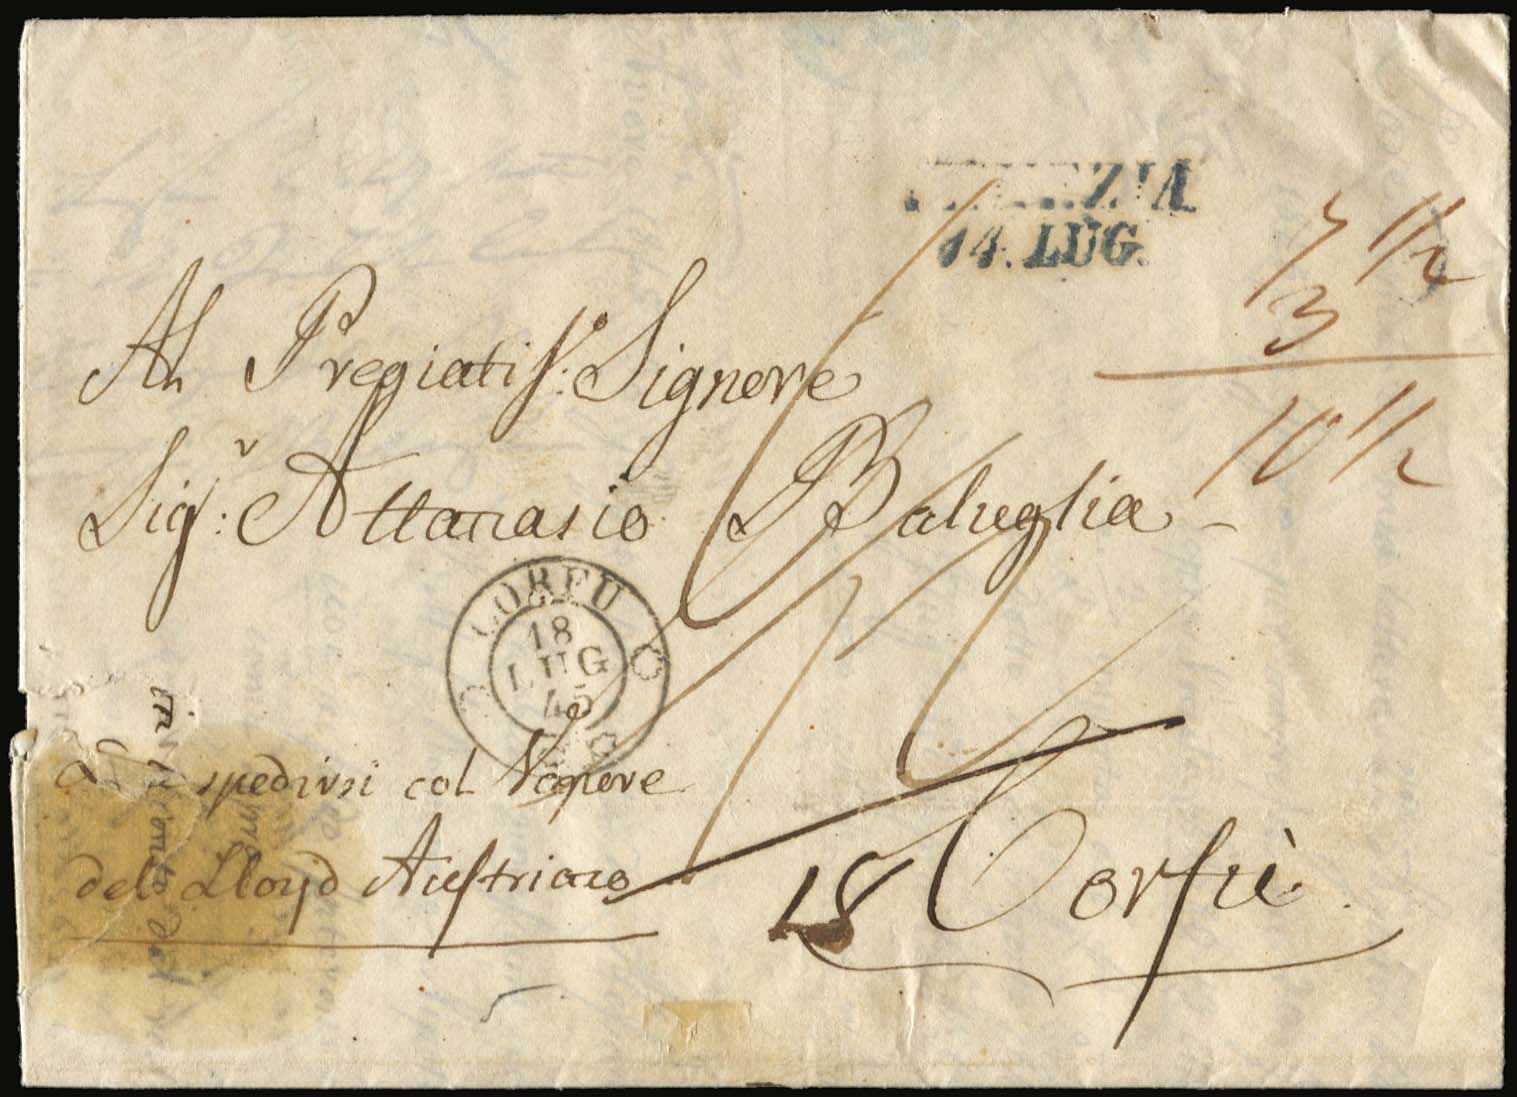 VENEZIA
14. LUG.
7 1/2
3
10 1/2
Al Pregiatiss:º Signore
Sig.r Attanasio Baluglia
CORFU
18
LUG
45
spedirsi col Vapore
del Lloyd Austriaco
18
Corfù